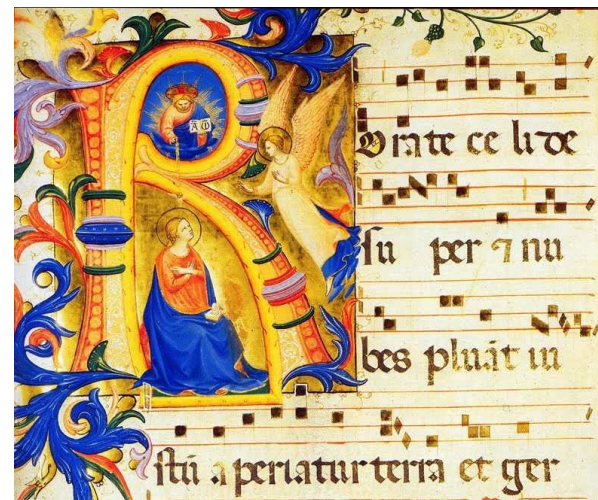 A Ω
ROrate ce li de
su per ⁊ nu
bes pluāt iu
stū a periatur terra et ger